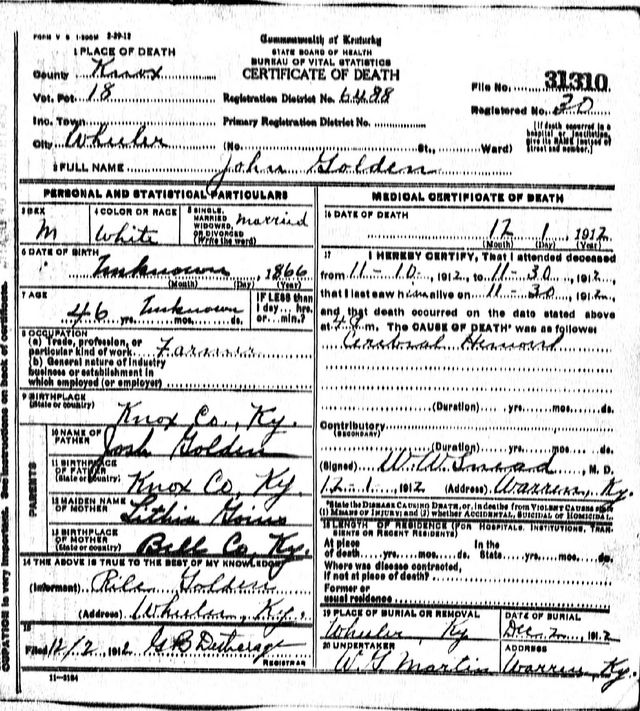 FORM V S 1-200M 2-29-12
Commonwealth of Kentucky
STATE BOARD OF HEALTH
BUREAU OF VITAL STATISTICS
CERTIFICATE OF DEATH
1 PLACE OF DEATH
County Knox
Vot. Pct. 18
Inc. Town
City Wheeler
Registration District No. 6488
Primary Registration District No.
(No. St., Ward)
File No. 31310
Registered No. 30
[If death occurred in a
hospital or institution,
give its NAME instead of
street and number.]
2 FULL NAME John Golden
PERSONAL AND STATISTICAL PARTICULARS
3 SEX
M
4 COLOR OR RACE
White
5 SINGLE,
MARRIED
WIDOWED,
OR DIVORCED
(Write the word)
Married
6 DATE OF BIRTH
Unknown, 1866
(Month) (Day) (Year)
7 AGE
46 yrs. Unknown mos. ds.
IF LESS than
1 day... hrs.
or... min.?
8 OCCUPATION
(a) Trade, profession, or
particular kind of work Farmer
(b) General nature of industry
business or establishment in
which employed (or employer)
9 BIRTHPLACE
(State or country)
Knox Co., Ky.
PARENTS
10 NAME OF
FATHER
Josh Golden
11 BIRTHPLACE
OF FATHER
(State or country)
Knox Co, Ky.
12 MAIDEN NAME
OF MOTHER
13 BIRTHPLACE
OF MOTHER
(State or country)
Bell Co, Ky.
14 THE ABOVE IS TRUE TO THE BEST OF MY KNOWLEDGE
(Informant) Golden
(Address) Wheeler, Ky.
15
Filed 12/2, 1912 G B
REGISTRAR
11-3184
MEDICAL CERTIFICATE OF DEATH
16 DATE OF DEATH
12 1, 1912
(Month) (Day) (Year)
17 I HEREBY CERTIFY, That I attended deceased
from 11-10, 1912, to 11-30, 1912,
that I last saw him alive on 11-30, 1912,
and that death occurred on the date stated above
at m. The CAUSE OF DEATH* was as follows:
Cerebral
(Duration) yrs. mos. ds.
Contributory
(SECONDARY)
(Duration) yrs. mos. ds.
(Signed) W. W. Smead, M. D.
12-1, 1912 (Address) Warren, Ky.
*State the DISEASE CAUSING DEATH, or, in deaths from VIOLENT CAUSES state
(1) MEANS OF INJURY; and (2) whether ACCIDENTAL, SUICIDAL or HOMICIDAL.
18 LENGTH OF RESIDENCE (FOR HOSPITALS, INSTITUTIONS, TRAN-
SIENTS OR RECENT RESIDENTS)
At place In the
of death yrs. mos. ds. State yrs. mos. ds.
Where was disease contracted,
if not at place of death?
Former or
usual residence
19 PLACE OF BURIAL OR REMOVAL
Wheeler, Ky
DATE OF BURIAL
Dec. 2, 1912
20 UNDERTAKER
Martin
ADDRESS
Warren, Ky.
OCCUPATION is very important. See instructions on back of certificate.